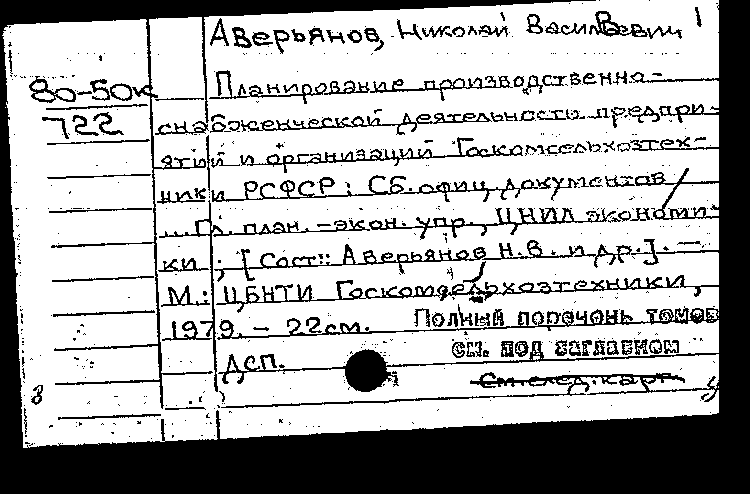 Аверьянов, Николай Васильевич 1
80-50к
722
Планирование производственно-
снабженческой деятельности предпри-
ятий и организаций Госкомсельхозтех-
ники РСФСР: Сб. офиц. документов /
...Гл. план.-экон. упр., ЦНИЛ экономи-
ки; [Сост.: Аверьянов Н.В. и др.]. —
М.: ЦБНТИ Госкомсельхозтехники,
1979. - 22см.
Полный перечень томов
см. под заглавием
ДСП.
См. след. карт.